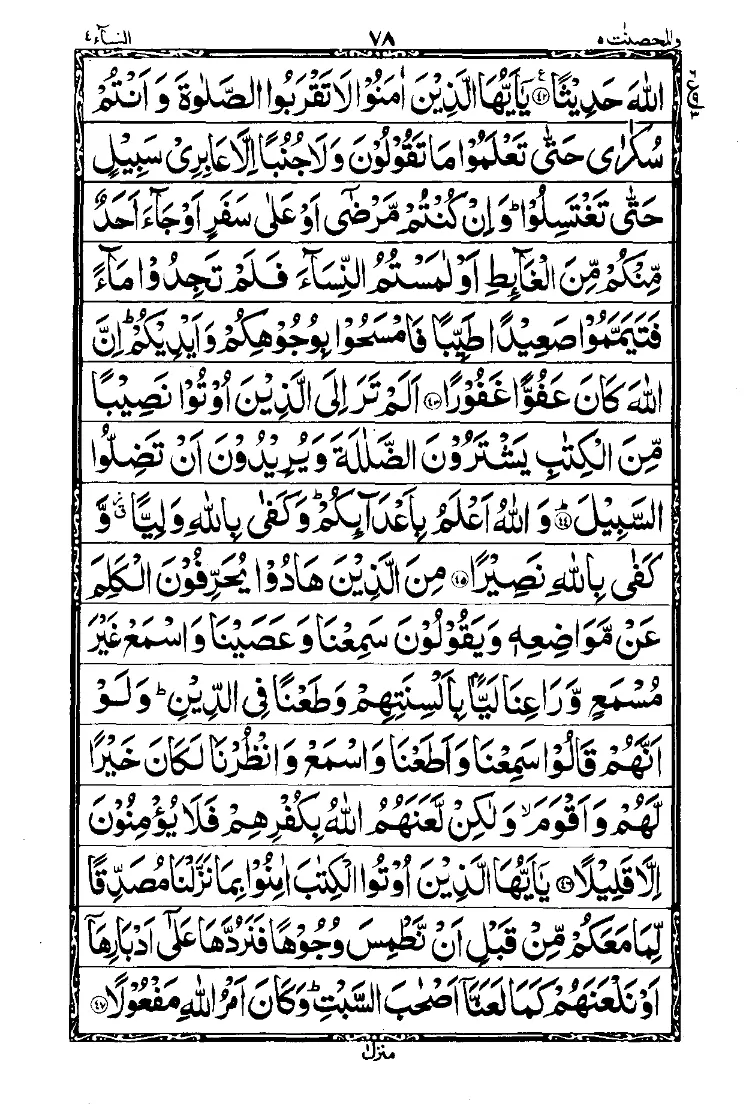 والمحصنت ٥ ٧٨ النسآء ٤
اللّٰهَ حَدِيْثًا ﴿٤٢﴾ يٰۤاَيُّهَا الَّذِيْنَ اٰمَنُوْا لَا تَقْرَبُوا الصَّلٰوةَ وَ اَنْتُمْ
سُكٰرٰى حَتّٰى تَعْلَمُوْا مَا تَقُوْلُوْنَ وَلَا جُنُبًا اِلَّا عَابِرِىْ سَبِيْلٍ
حَتّٰى تَغْتَسِلُوْا ؕ وَاِنْ كُنْتُمْ مَّرْضٰۤى اَوْ عَلٰى سَفَرٍ اَوْ جَآءَ اَحَدٌ
مِّنْكُمْ مِّنَ الْغَآىِٕطِ اَوْ لٰمَسْتُمُ النِّسَآءَ فَلَمْ تَجِدُوْا مَآءً
فَتَيَمَّمُوْا صَعِيْدًا طَيِّبًا فَامْسَحُوْا بِوُجُوْهِكُمْ وَاَيْدِيْكُمْ ؕ اِنَّ
اللّٰهَ كَانَ عَفُوًّا غَفُوْرًا ﴿٤٣﴾ اَلَمْ تَرَ اِلَى الَّذِيْنَ اُوْتُوْا نَصِيْبًا
مِّنَ الْكِتٰبِ يَشْتَرُوْنَ الضَّلٰلَةَ وَيُرِيْدُوْنَ اَنْ تَضِلُّوا
السَّبِيْلَ ؕ ﴿٤٤﴾ وَ اللّٰهُ اَعْلَمُ بِاَعْدَآىِٕكُمْ ؕ وَكَفٰى بِاللّٰهِ وَلِيًّا ۗ وَّ
كَفٰى بِاللّٰهِ نَصِيْرًا ﴿٤٥﴾ مِنَ الَّذِيْنَ هَادُوْا يُحَرِّفُوْنَ الْكَلِمَ
عَنْ مَّوَاضِعِهٖ وَيَقُوْلُوْنَ سَمِعْنَا وَعَصَيْنَا وَاسْمَعْ غَيْرَ
مُسْمَعٍ وَّرَاعِنَا لَيًّۢا بِاَلْسِنَتِهِمْ وَطَعْنًا فِى الدِّيْنِ ؕ وَلَوْ
اَنَّهُمْ قَالُوْا سَمِعْنَا وَاَطَعْنَا وَاسْمَعْ وَانْظُرْنَا لَكَانَ خَيْرًا
لَّهُمْ وَاَقْوَمَ ۙ وَلٰكِنْ لَّعَنَهُمُ اللّٰهُ بِكُفْرِهِمْ فَلَا يُؤْمِنُوْنَ
اِلَّا قَلِيْلًا ﴿٤٦﴾ يٰۤاَيُّهَا الَّذِيْنَ اُوْتُوا الْكِتٰبَ اٰمِنُوْا بِمَا نَزَّلْنَا مُصَدِّقًا
لِّمَا مَعَكُمْ مِّنْ قَبْلِ اَنْ نَّطْمِسَ وُجُوْهًا فَنَرُدَّهَا عَلٰۤى اَدْبَارِهَاۤ
اَوْ نَلْعَنَهُمْ كَمَا لَعَنَّاۤ اَصْحٰبَ السَّبْتِ ؕ وَكَانَ اَمْرُ اللّٰهِ مَفْعُوْلًا ﴿٤٧﴾
منزل ١